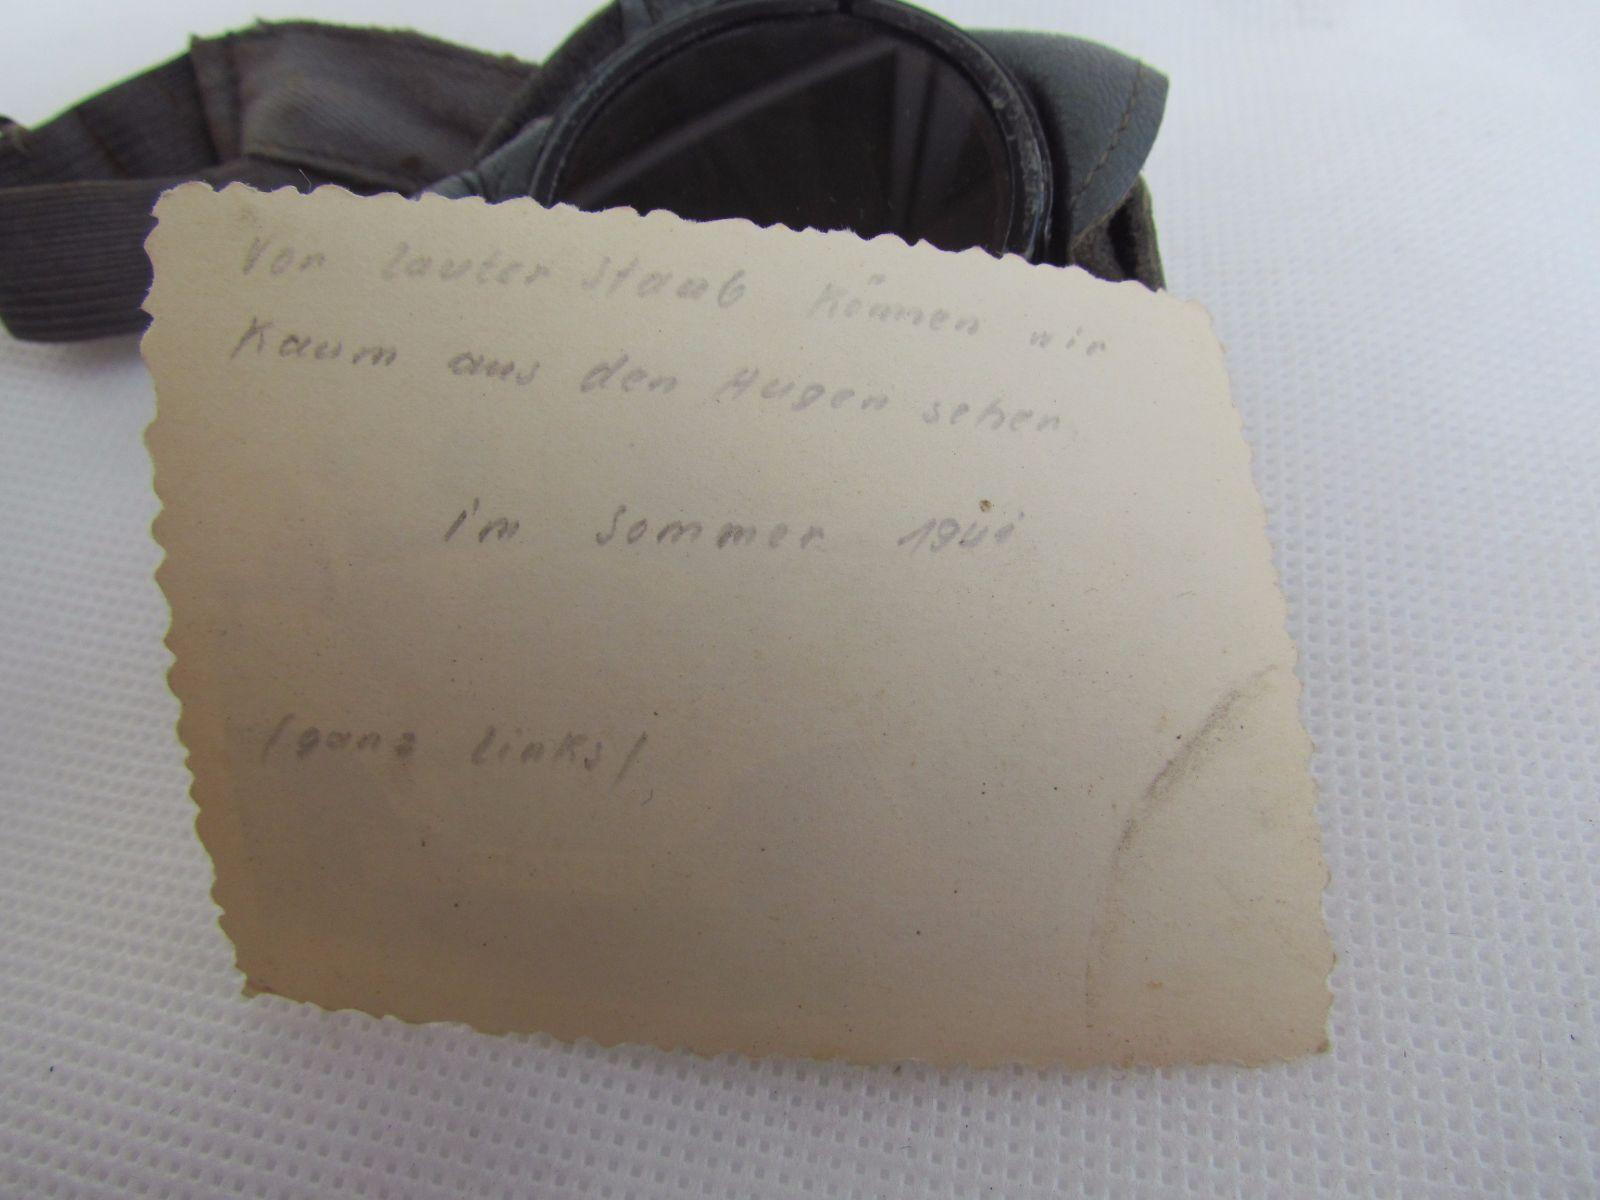 Vor lauter Staub können wir
kaum aus den Augen sehen
im Sommer
(ganz links)